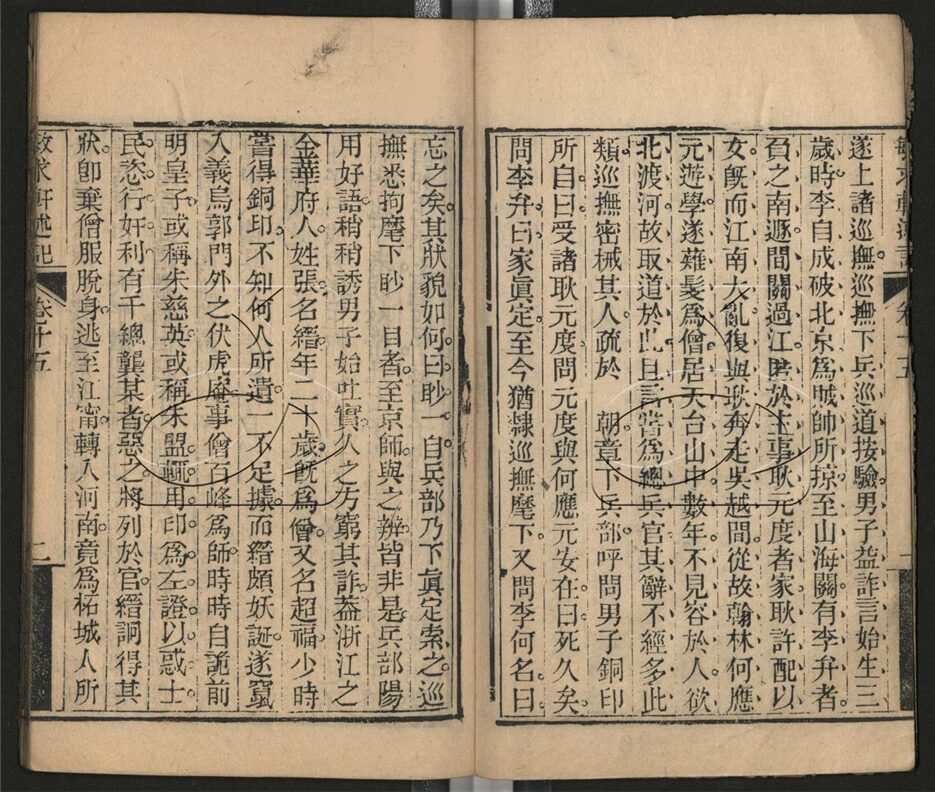 遂上諸巡撫巡撫下兵巡道按驗男子益詐言始生三
歲時李自成破北京為賊帥所掠至山海關有李弁者
負之南遯間關過江匿於主事耿元度者家耿許配以
女旣而江南大亂復與耿奔走吳越間從故翰林何應
元遊學遂薙髮為僧居天台山中數年不見容於人欲
北渡河故取道於此且言嘗為總兵官其辭不經多此
類巡撫密械其人疏於 朝章下兵部呼問男子銅印
所自曰受諸耿元度問元度與何應元安在曰死久矣
問李弁曰家眞定至今猶隸巡撫麾下又問李何名曰
忘之矣其狀貌如何曰眇一目兵部乃下眞定索之巡
撫悉拘麾下眇一目者至京師與之辨皆非是兵部陽
用好語稍稍誘男子始吐實久之乃窮其詐葢浙江之
金華府人姓張名縉年二十歲旣為僧又名超福少時
嘗得銅印不知何人所遺一不足據而縉頗妖誕遂竄
入義烏郭門外之伏虎庵事僧百峰為師時時自詭前
明皇子或稱朱慈英或稱朱盟輒用印為左證以惑士
民恣行奸利有千總龔某者惡之將列於官縉詗得其
狀卽棄僧服脫身逃至江甯轉入河南竟為柘城人所
敏求軒述記
卷十五
二